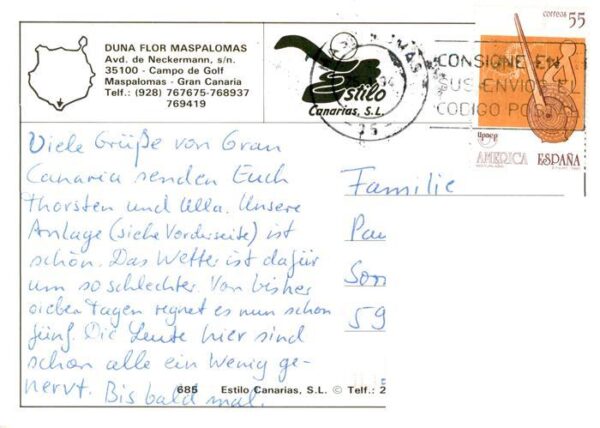 DUNA FLOR MASPALOMAS
Avd. de Neckermann, s/n.
35100 - Campo de Golf
Maspalomas - Gran Canaria
Telf.: (928) 767675-768937
769419
Estilo
Canarias, S.L.
CONSIGNE EN
SUS ENVIOS EL
CODIGO POS
correos 55
upaep
AMERICA ESPAÑA
Viele Grüße von Gran
Canaria senden Euch
Thorsten und Ulla. Unsere
Anlage (siehe Vorderseite) ist
schön. Das Wetter ist dafür
um so schlechter. Von bisher
sieben Tagen regnet es nun schon
fünf. Die Leute hier sind
schon alle ein wenig ge-
nervt. Bis bald mal.
Familie
Pau
Son
59
685 Estilo Canarias, S.L. © Telf.: 2